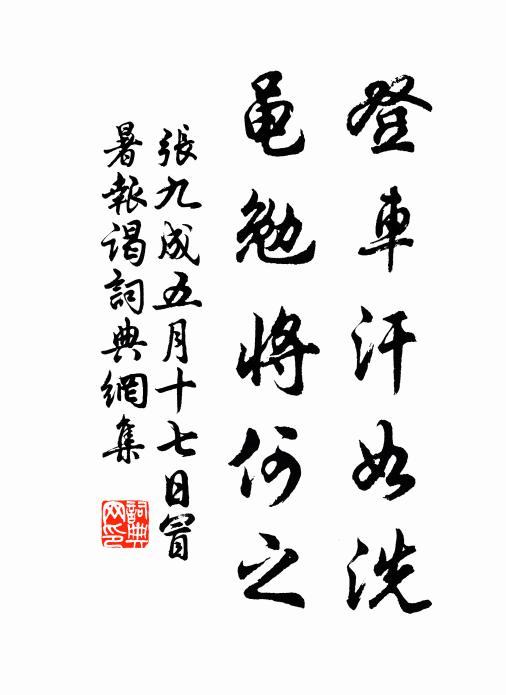 登車汗如洗
黽勉將何之
張九成五月十七日冒
暑報謁詞典網集
詞典
网印